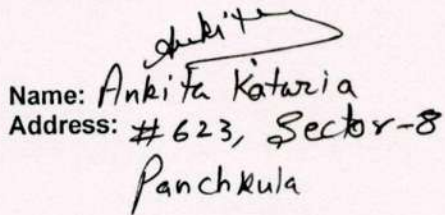 Ankita
Name: Ankita Kataria
Address: #623, Sector-8
Panchkula